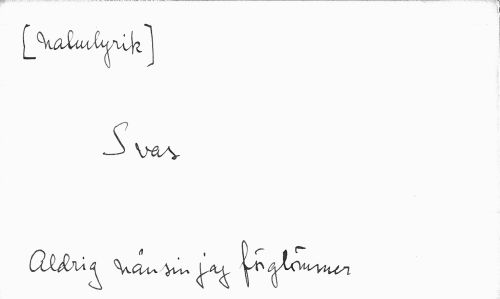 [Naturlyrik]
Svar
Aldrig nånsin jag förglömmer